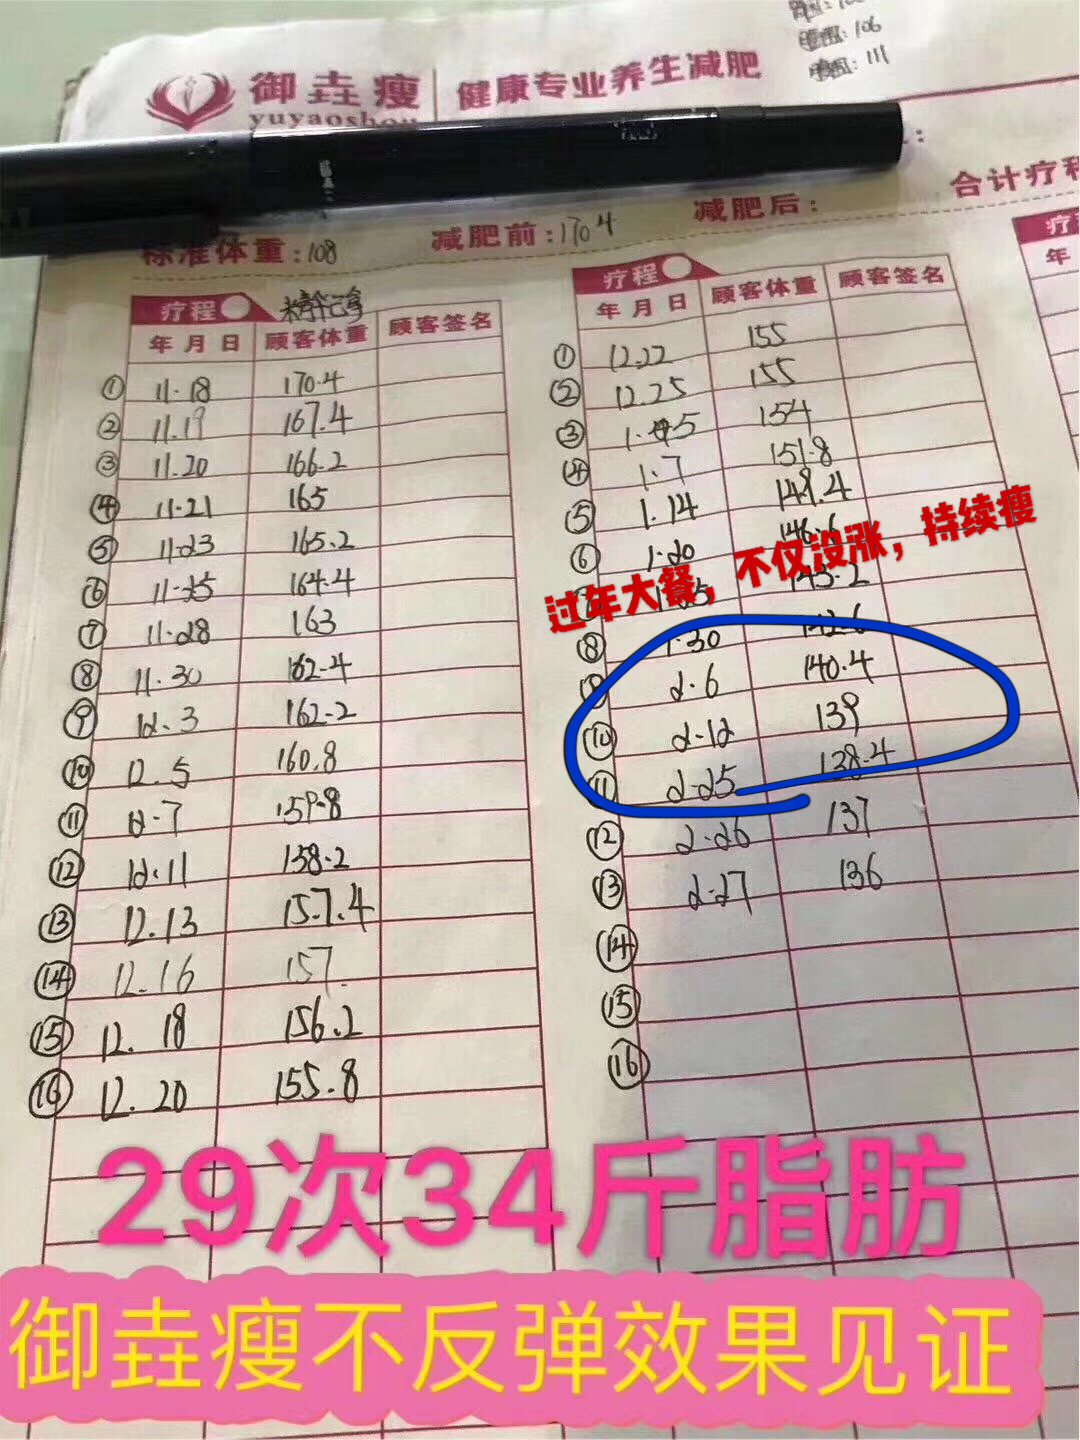 御垚瘦
yuyaoshou
健康专业养生减肥
腰围:106
:111
合计疗程
标准体重:108
减肥前:170.4
减肥后:
疗程
年 月 日 顾客体重 顾客签名
① 11.18 170.4
② 11.19 167.4
③ 11.20 166.2
④ 11.21 165
⑤ 11.23 165.2
⑥ 11.25 164.4
⑦ 11.28 163
⑧ 11.30 162.4
⑨ 12.3 162.2
⑩ 12.5 160.8
⑪ 12.7 159.8
⑫ 12.11 158.2
⑬ 12.13 157.4
⑭ 12.16 157
⑮ 12.18 156.2
⑯ 12.20 155.8
疗程
年 月 日 顾客体重 顾客签名
① 12.22 155
② 12.25 155
③ 1.5 154
④ 1.7 151.8
⑤ 1.14 149.4
⑥ 1.20 146.6
143.2
⑧ 1.30 142.6
⑨ 2.6 140.4
⑩ 2.12 139
⑪ 2.25 138.4
⑫ 2.26 137
⑬ 2.27 136
⑭
⑮
⑯
疗
年
过年大餐，不仅没涨，持续瘦
29次34斤脂肪
御垚瘦不反弹效果见证